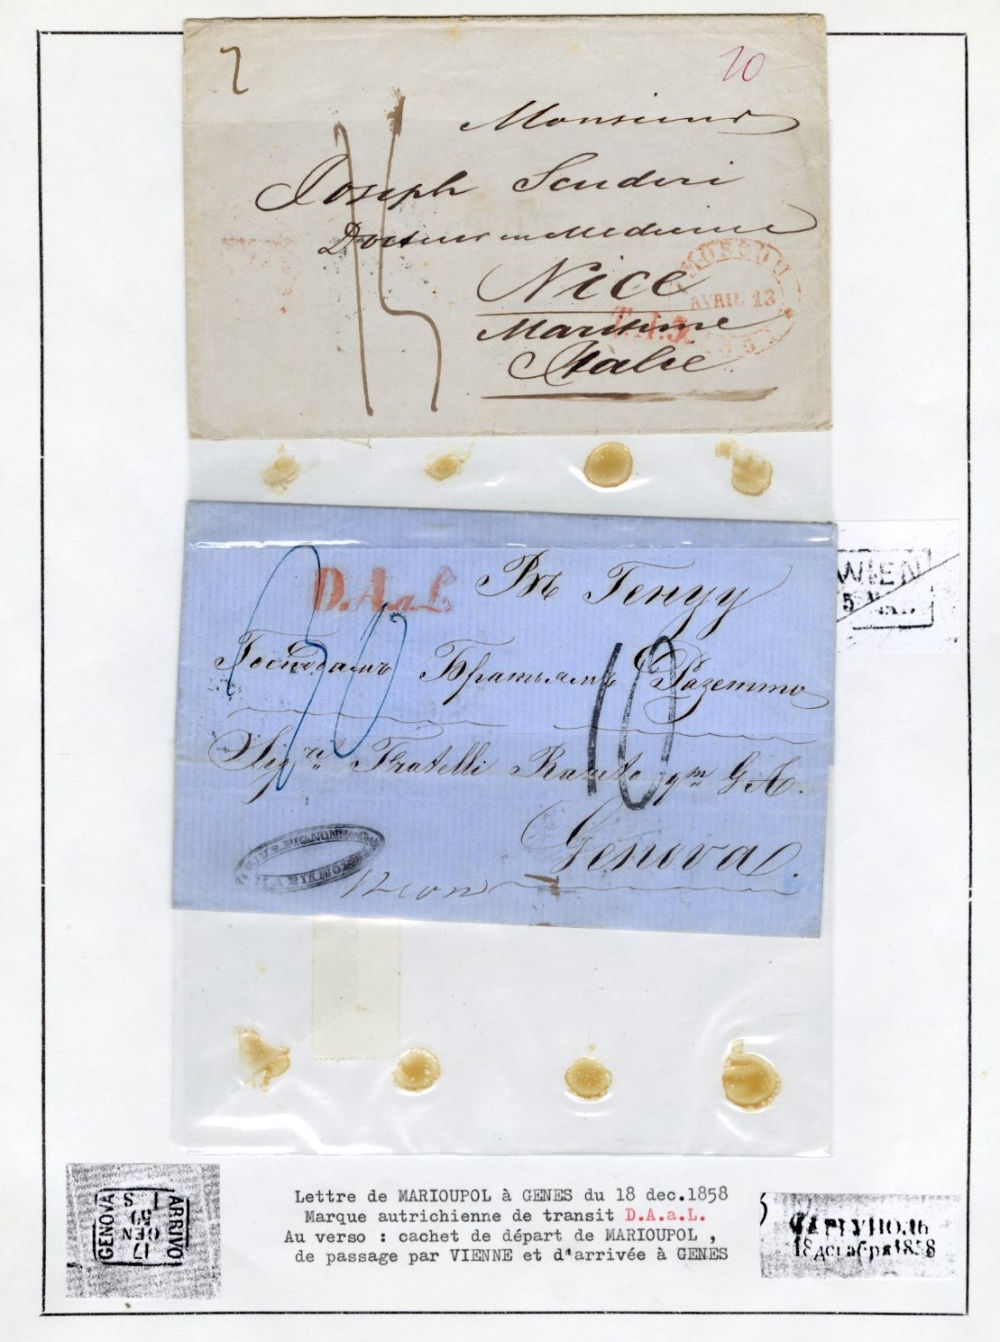 20
Monsieur
Joseph Scuderi
Docteur en Médecine
Nice
Maritime
Italie
MOSCOU
AVRIL 13
T. 1.3.
WIEN
D.A.a.L
Въ Геную
Господамъ Братьямъ Разетто
10
Sigri Fratelli Razeto qm G. A.
Genova.
Lettre de MARIOUPOL à GENES du 18 dec.1858
Marque autrichienne de transit D.A.a.L.
Au verso : cachet de départ de MARIOUPOL ,
de passage par VIENNE et d'arrivée à GENES
GENOVA
17
GEN
59
1 S
ARRIVO
МАРІУПОЛЬ
18 декабря 1858